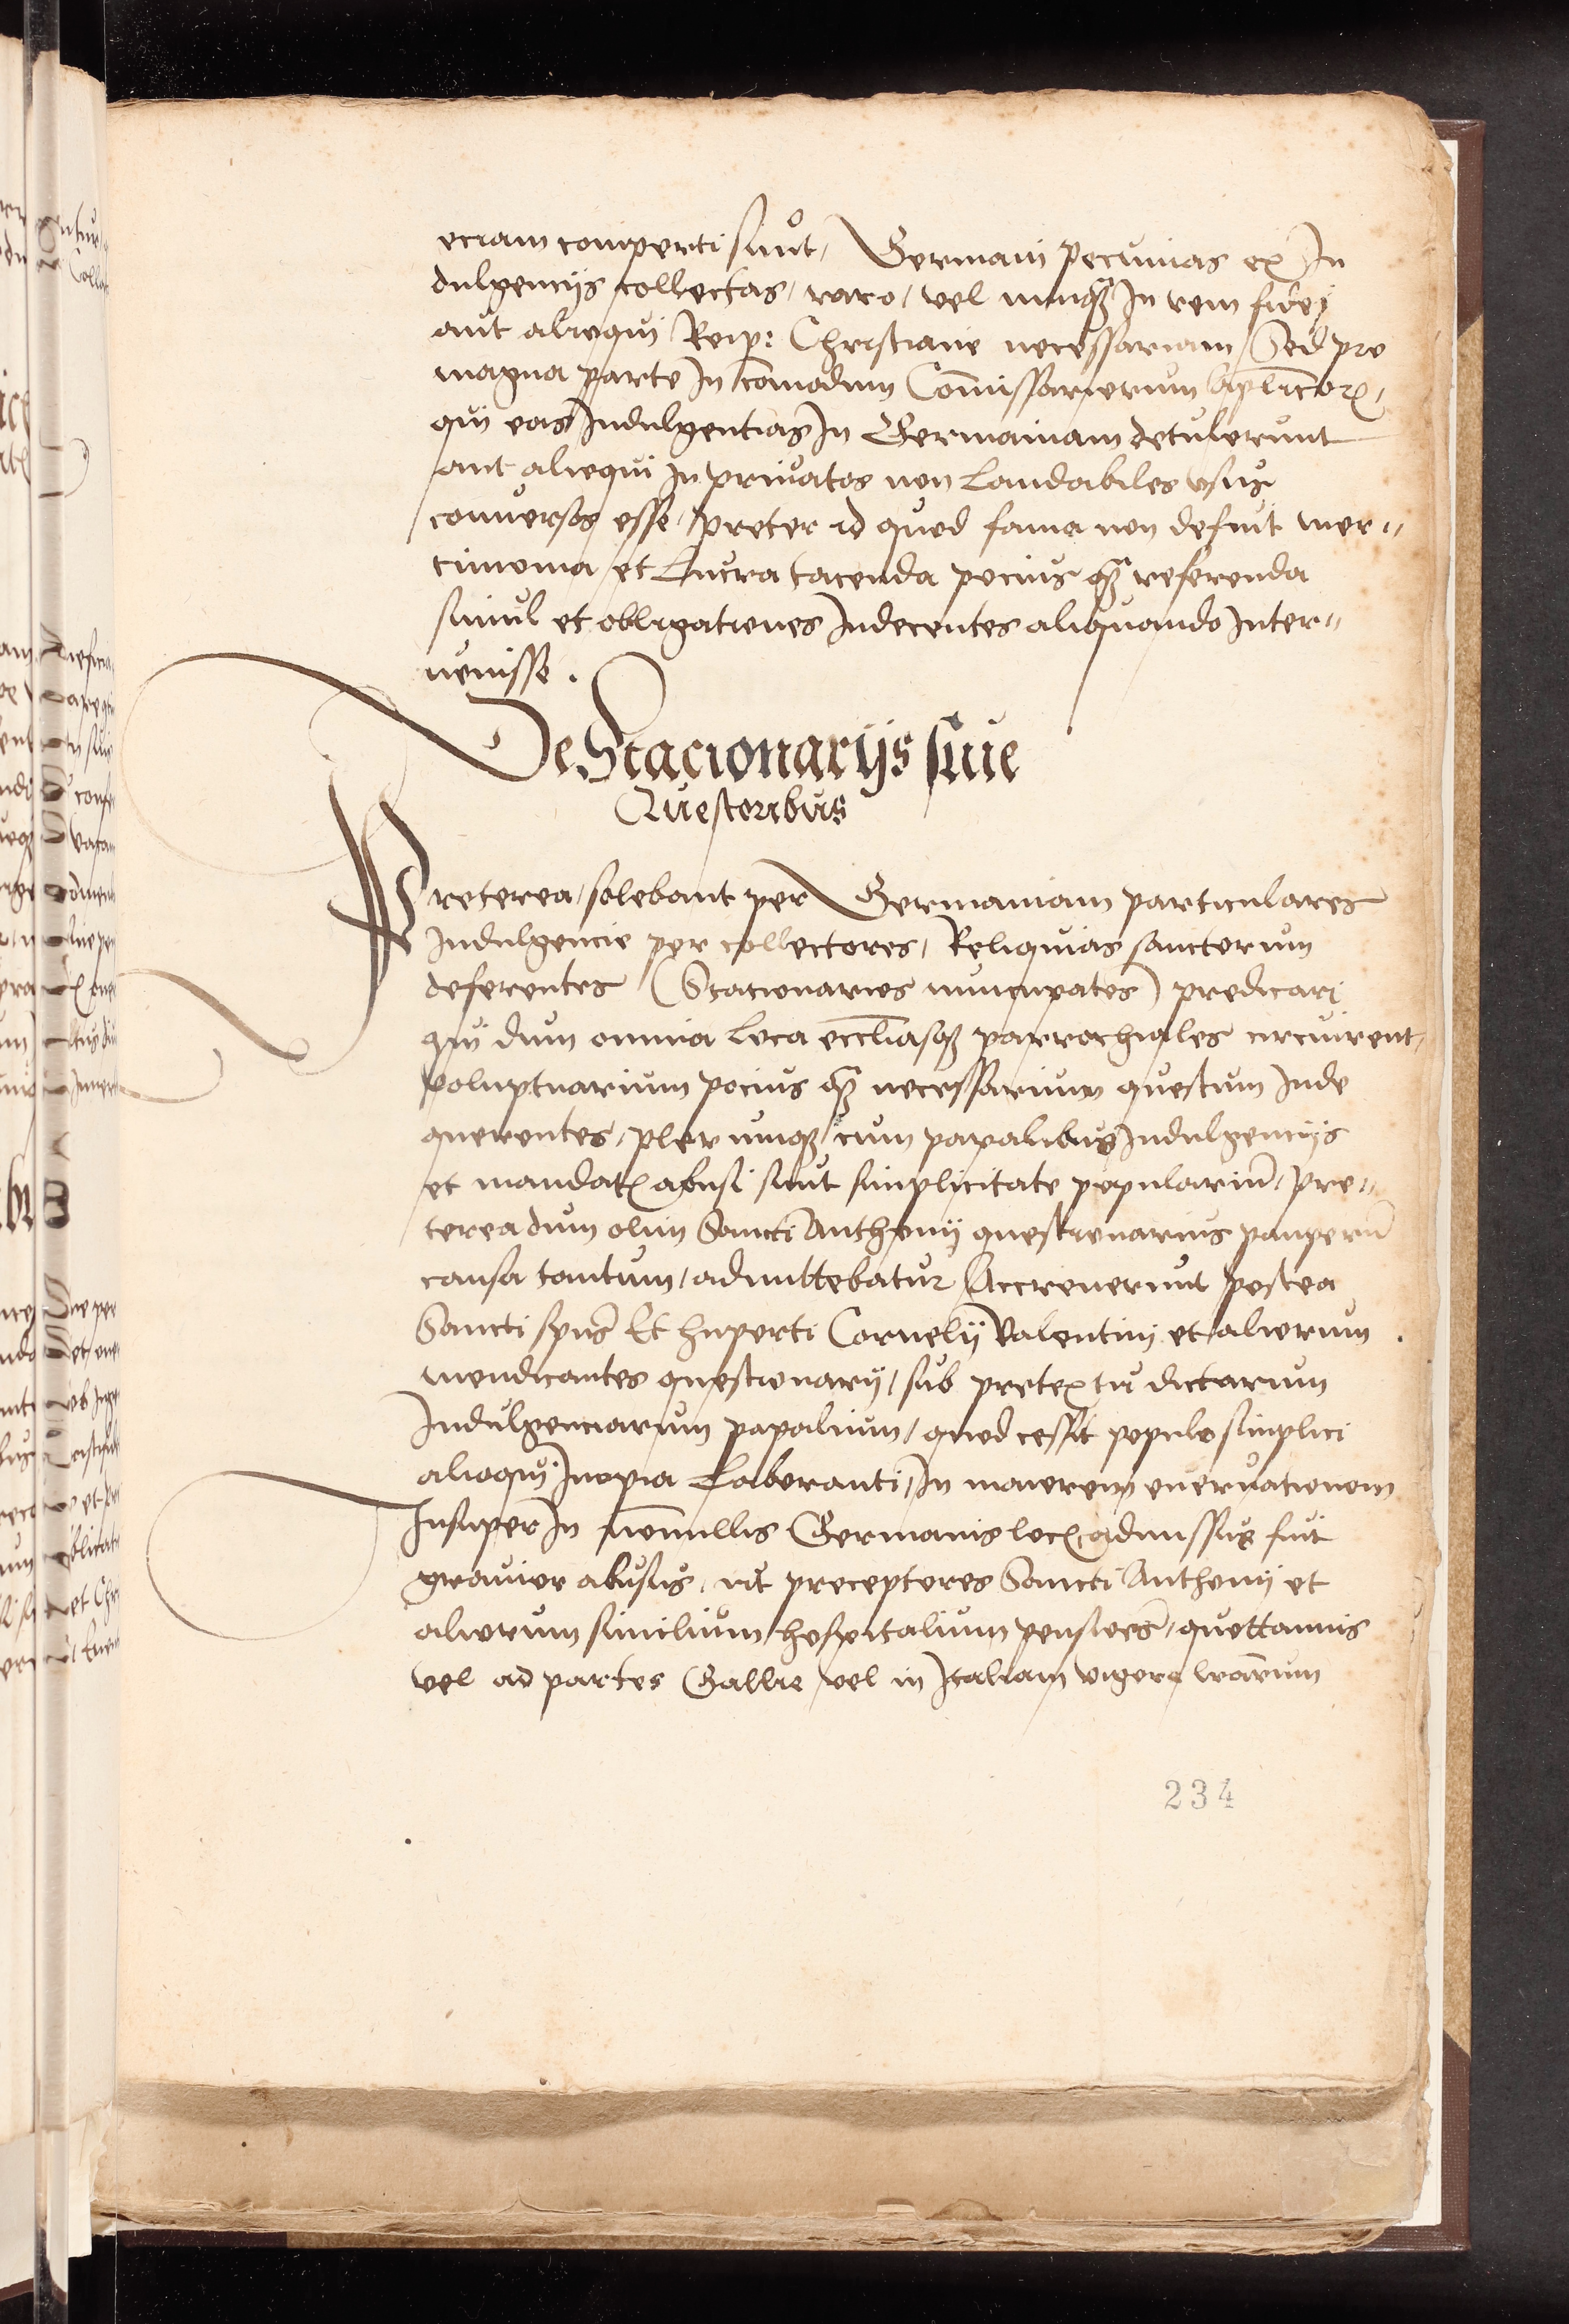 eciam comperti sunt, Germani Pecunias ex In
dulgencijs collectas, raro, vel nunq̃ȝ In rem fidej
aut alioquj Reip: Christiane necessariam, Sed pro
magna parte In com̄odum Com̄issariorum aplīcorꝝ,
qui eas Indulgentias In Germaniam detulerunt
aut alioqui In privatos non Laudabiles vsus
conversos esse, preter id quod fama non defuit mer-
cimonia et Lucra tacenda pocius q̃ȝ referenda
simul et obligationes Indecentes aliquando Inter-
uenisse.
De Stacionarijs siue
Questoribus
Preterea, solebant per Germaniam particulares
Indulgencie per collectores, Reliquias sanctorum
deferentes (Stacionarios nuncupatos) predicarj
qui dum omnia Loca eccl̄iasqȝ parrochiales circuirent,
voluptuarium pocius q̃ȝ necessarium questum Inde
querentes, plerumqȝ cum papalibus Indulgencijs
et mandatꝭ abusi sunt simplicitate popularium̄, Pre-
terea dum olim Sancti Anthonij questionarius pauperū
causa tantum, admittebatur Accreuerunt postea
Sancti spūs Et huperti Cornelij Valentinj et aliorum
mendicantes questionarij, sub pretextu dictarum
Indulgenciarum papalium, quod cessit populo simplici
alioquj Inopia Laboranti, In maiorem eneruationem
Insuper In nōnnullis Germanis locꝭ admissus fuit
grauior abusus, vt preceptores Sancti Anthonij et
aliorum similium hospitalium pensiōes, quottannis
vel ad partes Gallie vel in Italiam vigore lrārum
234